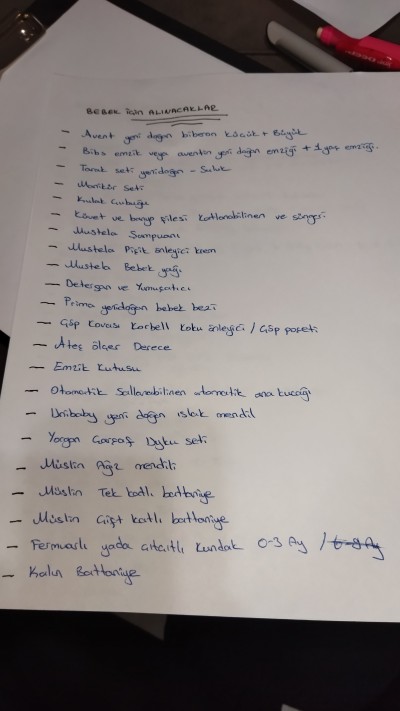 BEBEK için ALINACAKLAR
- Avent yeni doğan biberon küçük + Büyük
- Bibs emzik veya aventin yeni doğan emziği + 1 yaş emziği.
- Tarak seti yenidoğan - Suluk
- Manikür Seti
- Kulak Çubuğu
- Küvet ve banyo filesi katlanabilinen ve süngeri
- Mustela Şampuanı
- Mustela Pişik önleyici krem
- Mustela Bebek yağı
- Deterjan ve Yumuşatıcı
- Prima yenidoğan bebek bezi
- Çöp Kovası Korbell Koku önleyici / Çöp poşeti
- Ateş ölçer Derece
- Emzik Kutusu
- Otomatik Sallanabilinen otomatik ana kucağı
- Unibaby yeni doğan ıslak mendil
- Yorgan Çarşaf Uyku seti
- Müslin Ağız mendili
- Müslin Tek katlı battaniye
- Müslin Çift katlı battaniye
- Fermuarlı yada çıtçıtlı kundak 0-3 Ay /
- Kalın Battaniye